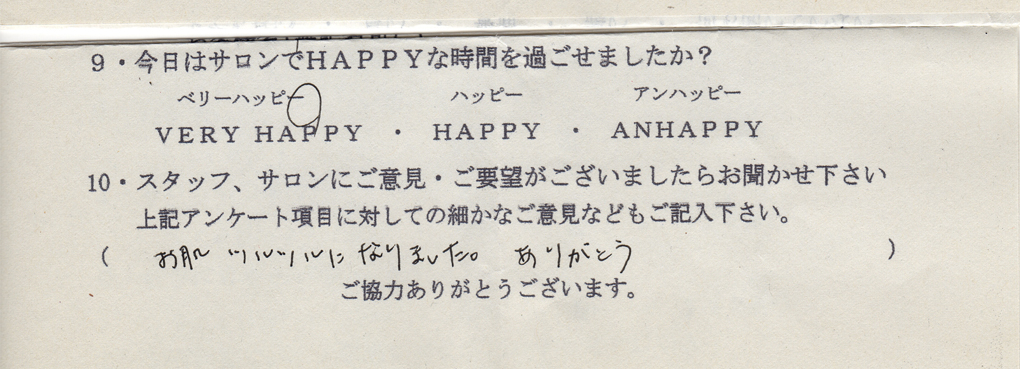 9・今日はサロンでHAPPYな時間を過ごせましたか？
ベリーハッピー ハッピー アンハッピー
VERY HAPPY ・ HAPPY ・ ANHAPPY
10・スタッフ、サロンにご意見・ご要望がございましたらお聞かせ下さい
上記アンケート項目に対しての細かなご意見などもご記入下さい。
( お肌 ツルツルに なりました。 ありがとう )
ご協力ありがとうございます。